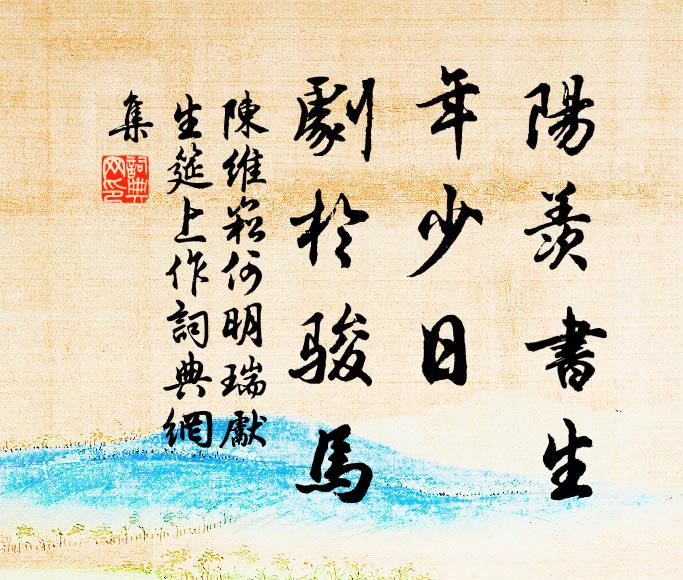 陽羨書生
年少日
劇於駿馬
陳維崧何明瑞獻
生筵上作詞典網
集
詞典
网印